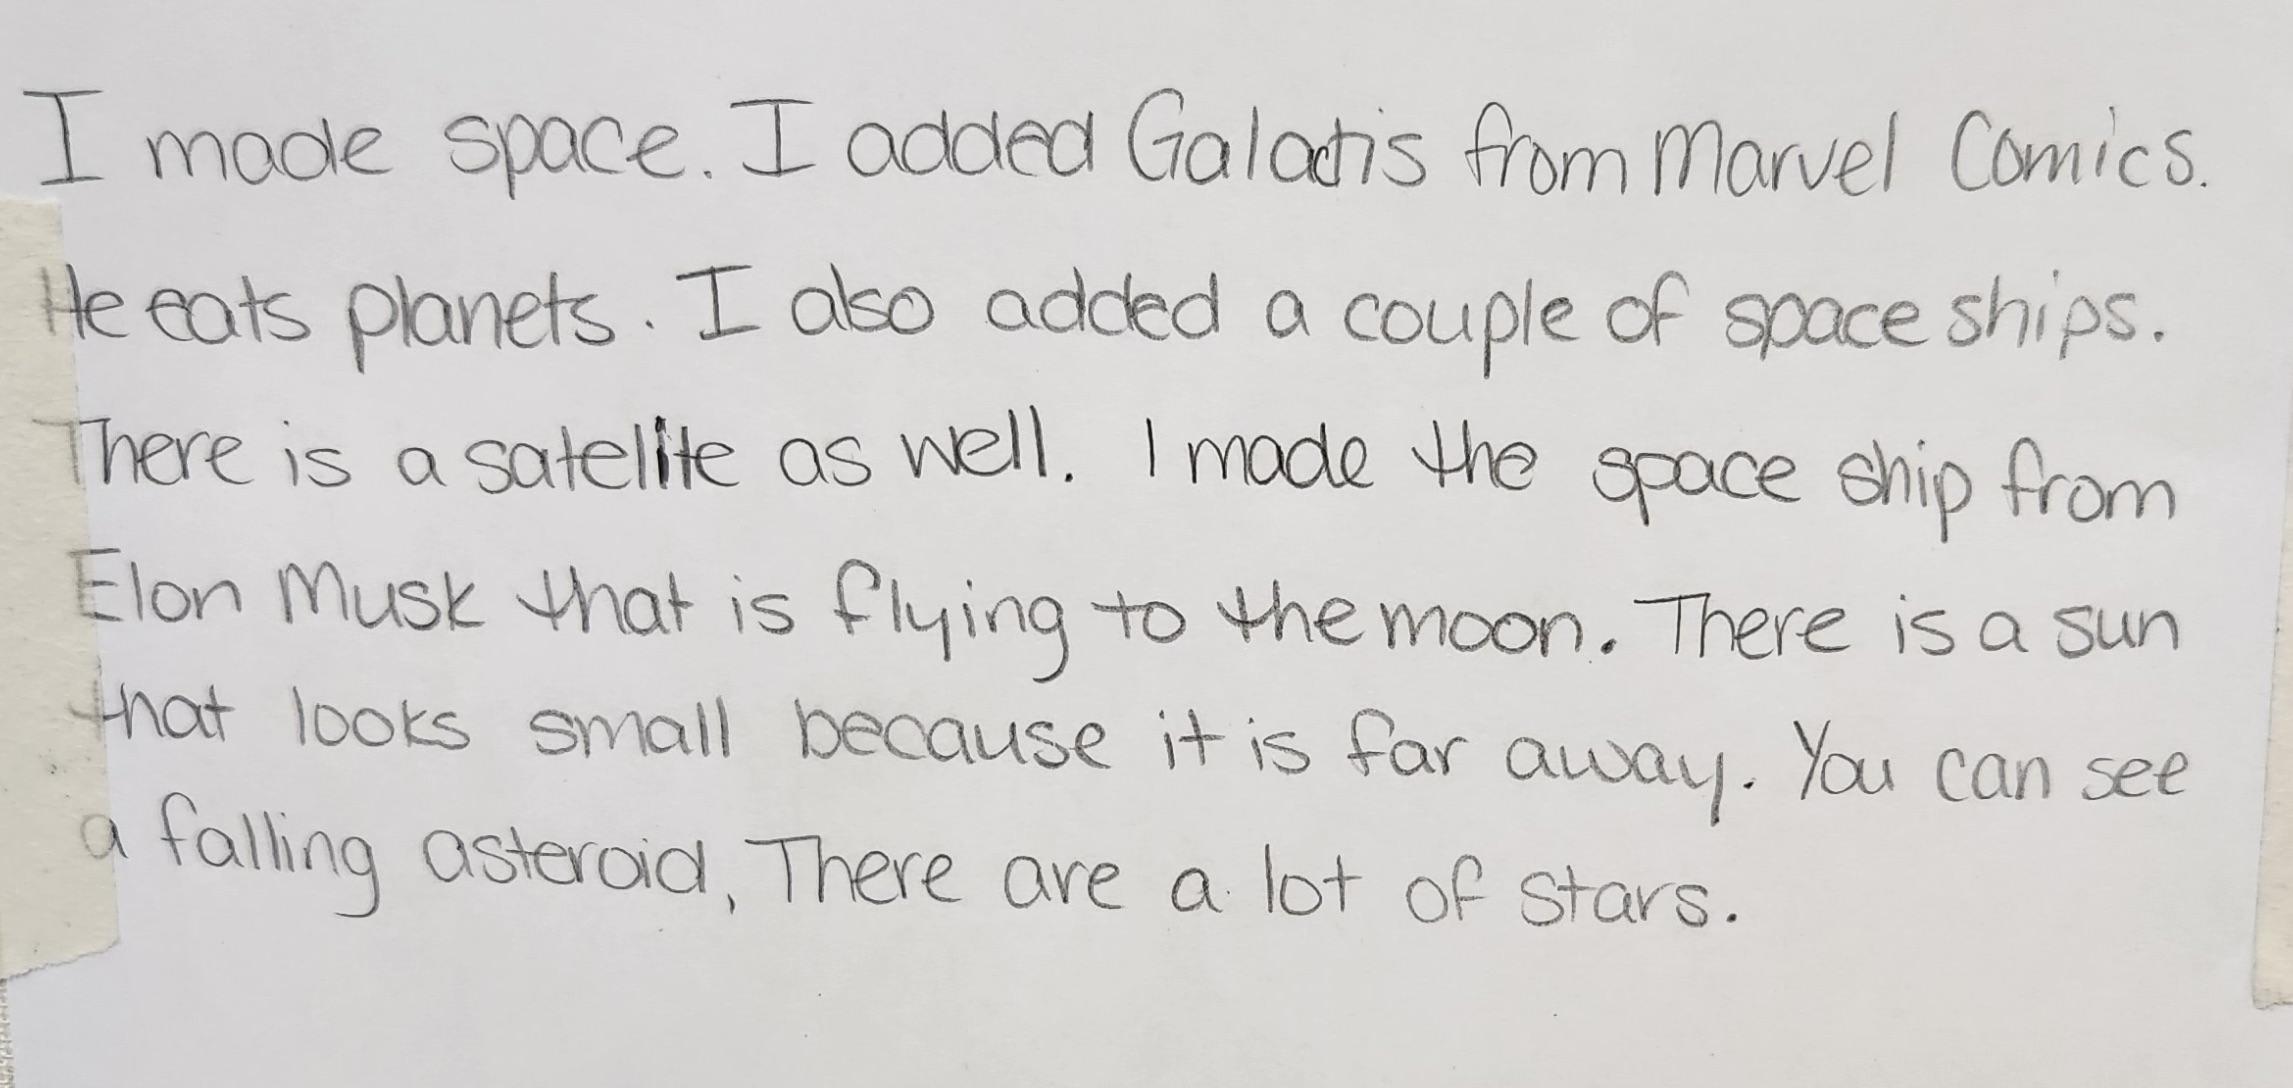 I made space. I added Galactis from Marvel Comics.
He eats planets. I also added a couple of space ships.
There is a satelite as well. I made the space ship from
Elon Musk that is flying to the moon. There is a sun
that looks small because it is far away. You can see
a falling asteroid, There are a lot of stars.